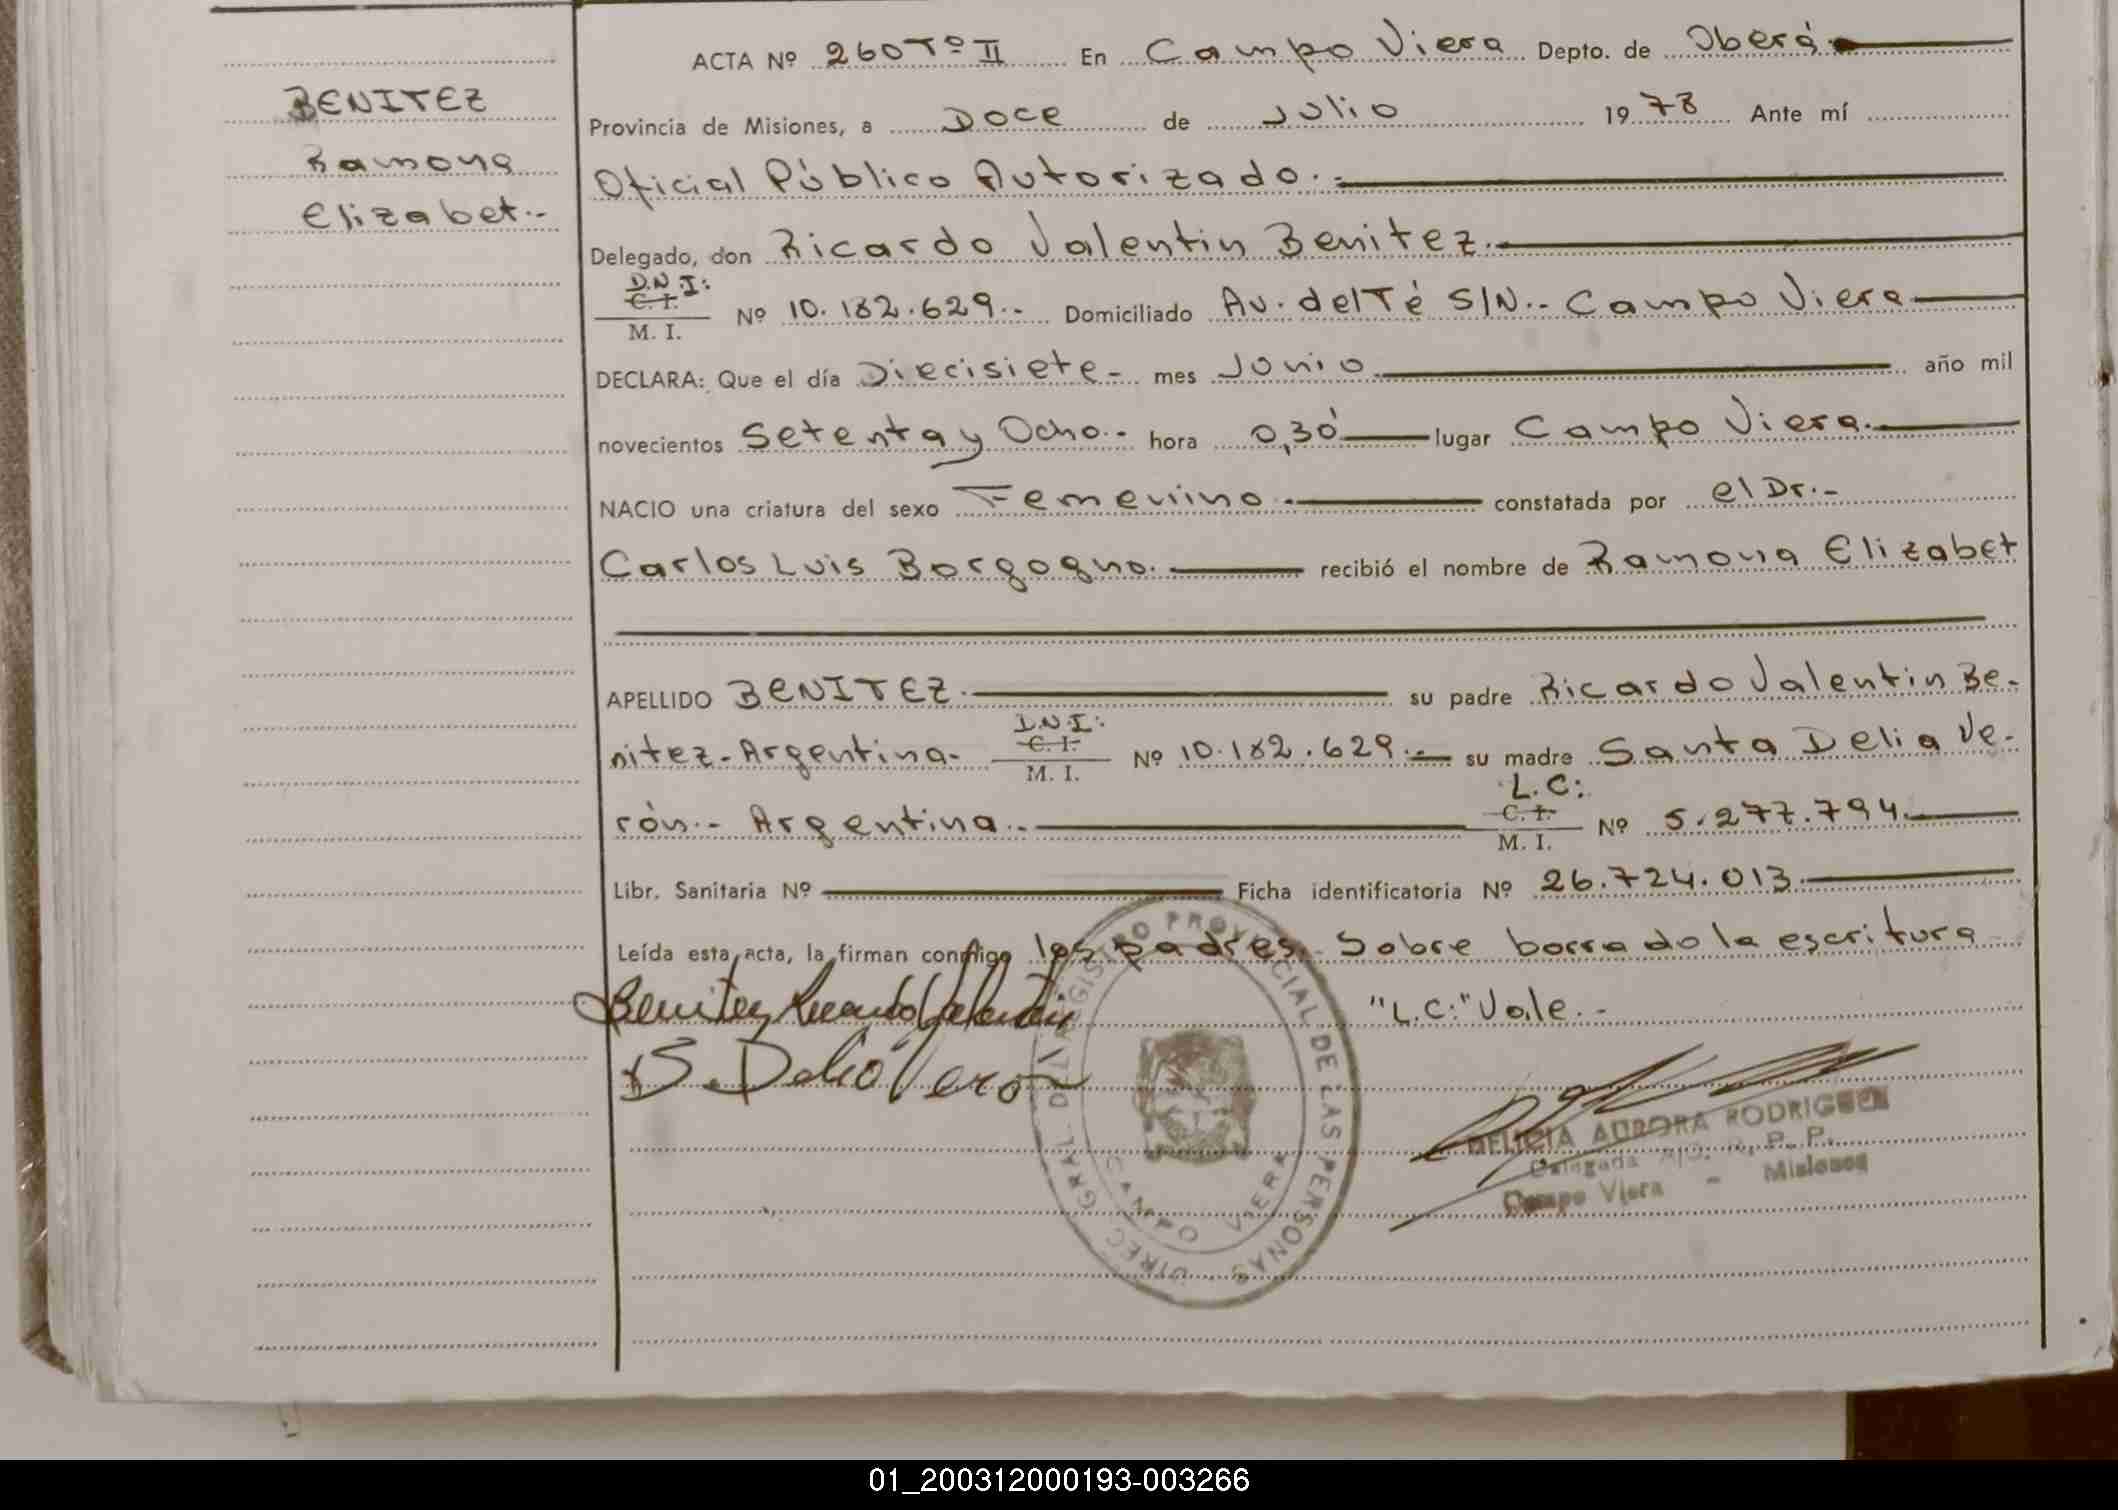 BENITEZ
Ramona
Elizabet.-
ACTA Nº 260 Tº II En Campo Viera Depto. de Oberá
Provincia de Misiones, a Doce de Julio 1978 Ante mí
Oficial Público Autorizado.-
Delegado, don Ricardo Valentin Benitez.
D.N.I:
C. I.
M. I.
Nº 10.182.629.- Domiciliado Av. del Té S/N.- Campo Viera
DECLARA: Que el día Diecisiete- mes Junio año mil
novecientos Setenta y Ocho.- hora 0,30 lugar Campo Viera.
NACIO una criatura del sexo Femenino.- constatada por el Dr.-
Carlos Luis Borgogno. recibió el nombre de Ramona Elizabet
APELLIDO BENITEZ. su padre Ricardo Valentin Be-
nitez- Argentina- D.N.I: C. I. M. I. Nº 10.182.629.- su madre Santa Delia Ve-
rón.- Argentina.- L.C: C. I. M. I. Nº 5.277.794.
Libr. Sanitaria Nº Ficha identificatoria Nº 26.724.013.
Leída esta acta, la firman conmigo los padres.- Sobre borrado la escritura
"L.C:" Vale.-
Benitez Ricardo Valentin
S. Delia Veron
DIREC. GRAL. DEL REGISTRO PROVINCIAL DE LAS PERSONAS
CAMPO VIERA
DELICIA AURORA RODRIGUEZ
Delegada R. P. P.
Campo Viera - Misiones
01_200312000193-003266